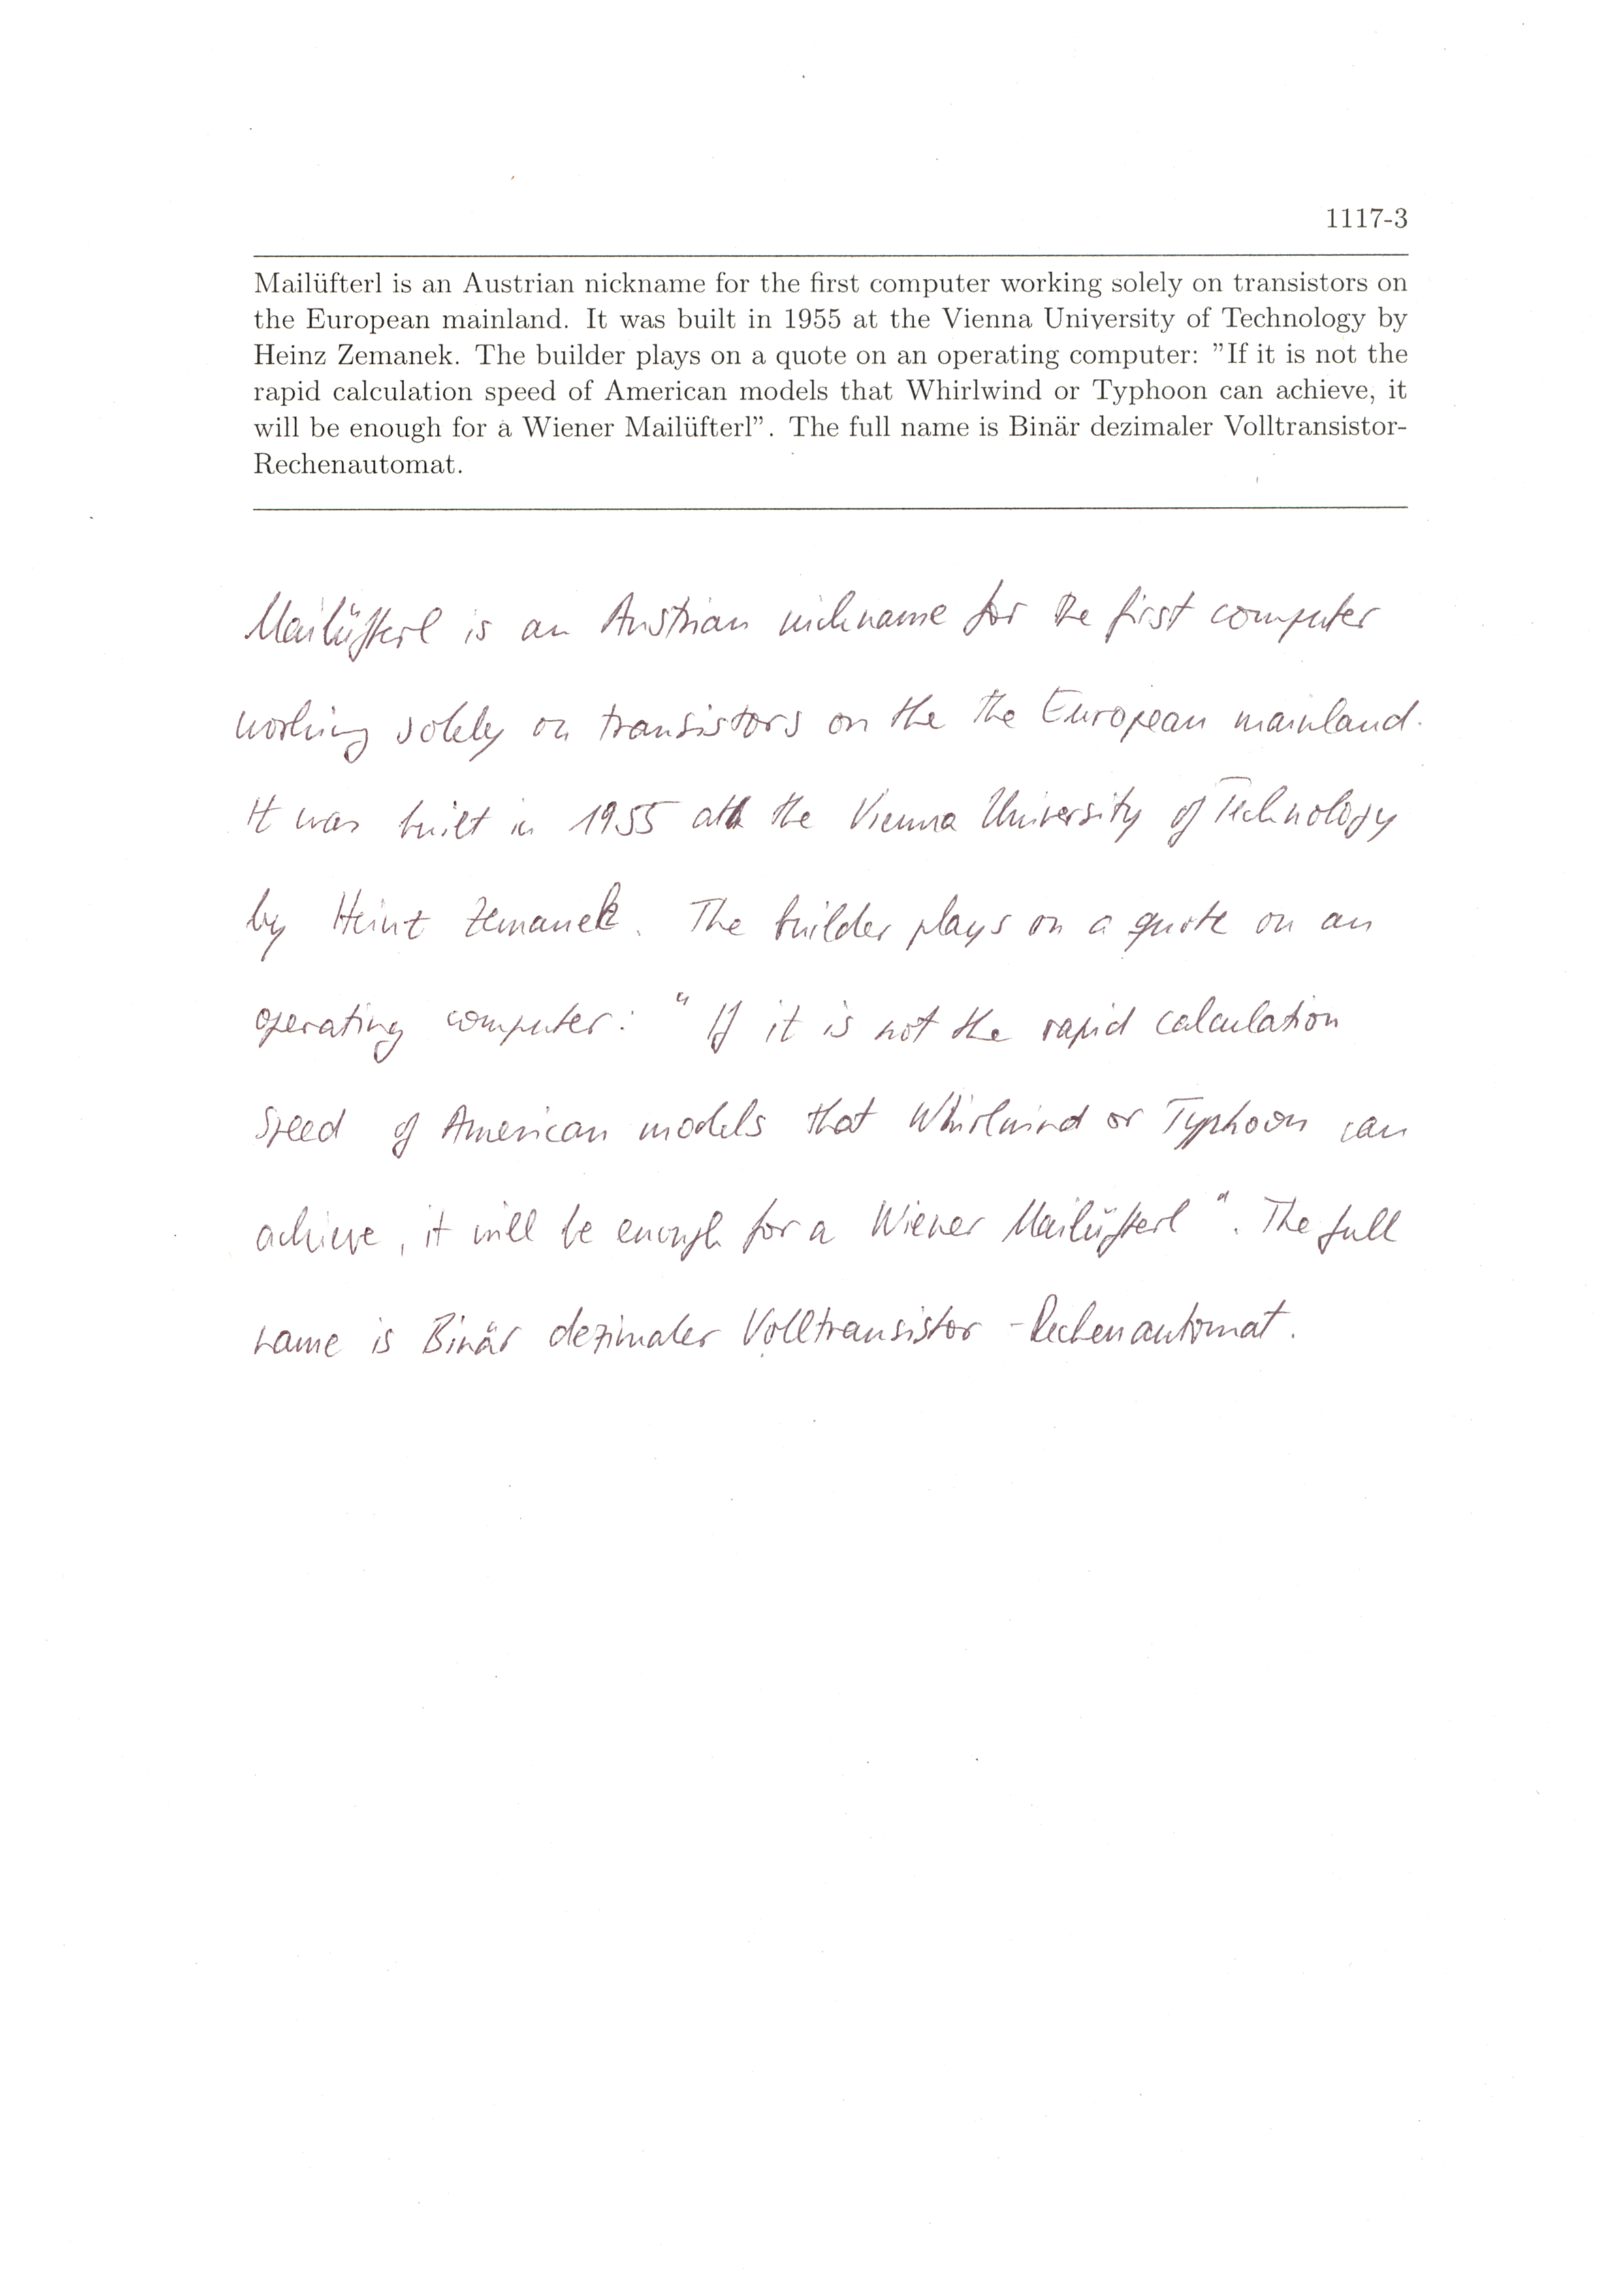 1117-3
Mailüfterl is an Austrian nickname for the first computer working solely on transistors on
the European mainland. It was built in 1955 at the Vienna University of Technology by
Heinz Zemanek. The builder plays on a quote on an operating computer: ”If it is not the
rapid calculation speed of American models that Whirlwind or Typhoon can achieve, it
will be enough for a Wiener Mailüfterl”. The full name is Binär dezimaler Volltransistor-
Rechenautomat.
Mailüfterl is an Austrian nickname for the first computer
working solely on transistors on the the European mainland.
It was built in 1955 at the Vienna University of Technology
by Heinz Zemanek. The builder plays on a quote on an
operating computer: “If it is not the rapid calculation
speed of American models that Whirlwind or Typhoon can
achieve, it will be enough for a Wiener Mailüfterl”. The full
name is Binär dezimaler Volltransistor-Rechenautomat.